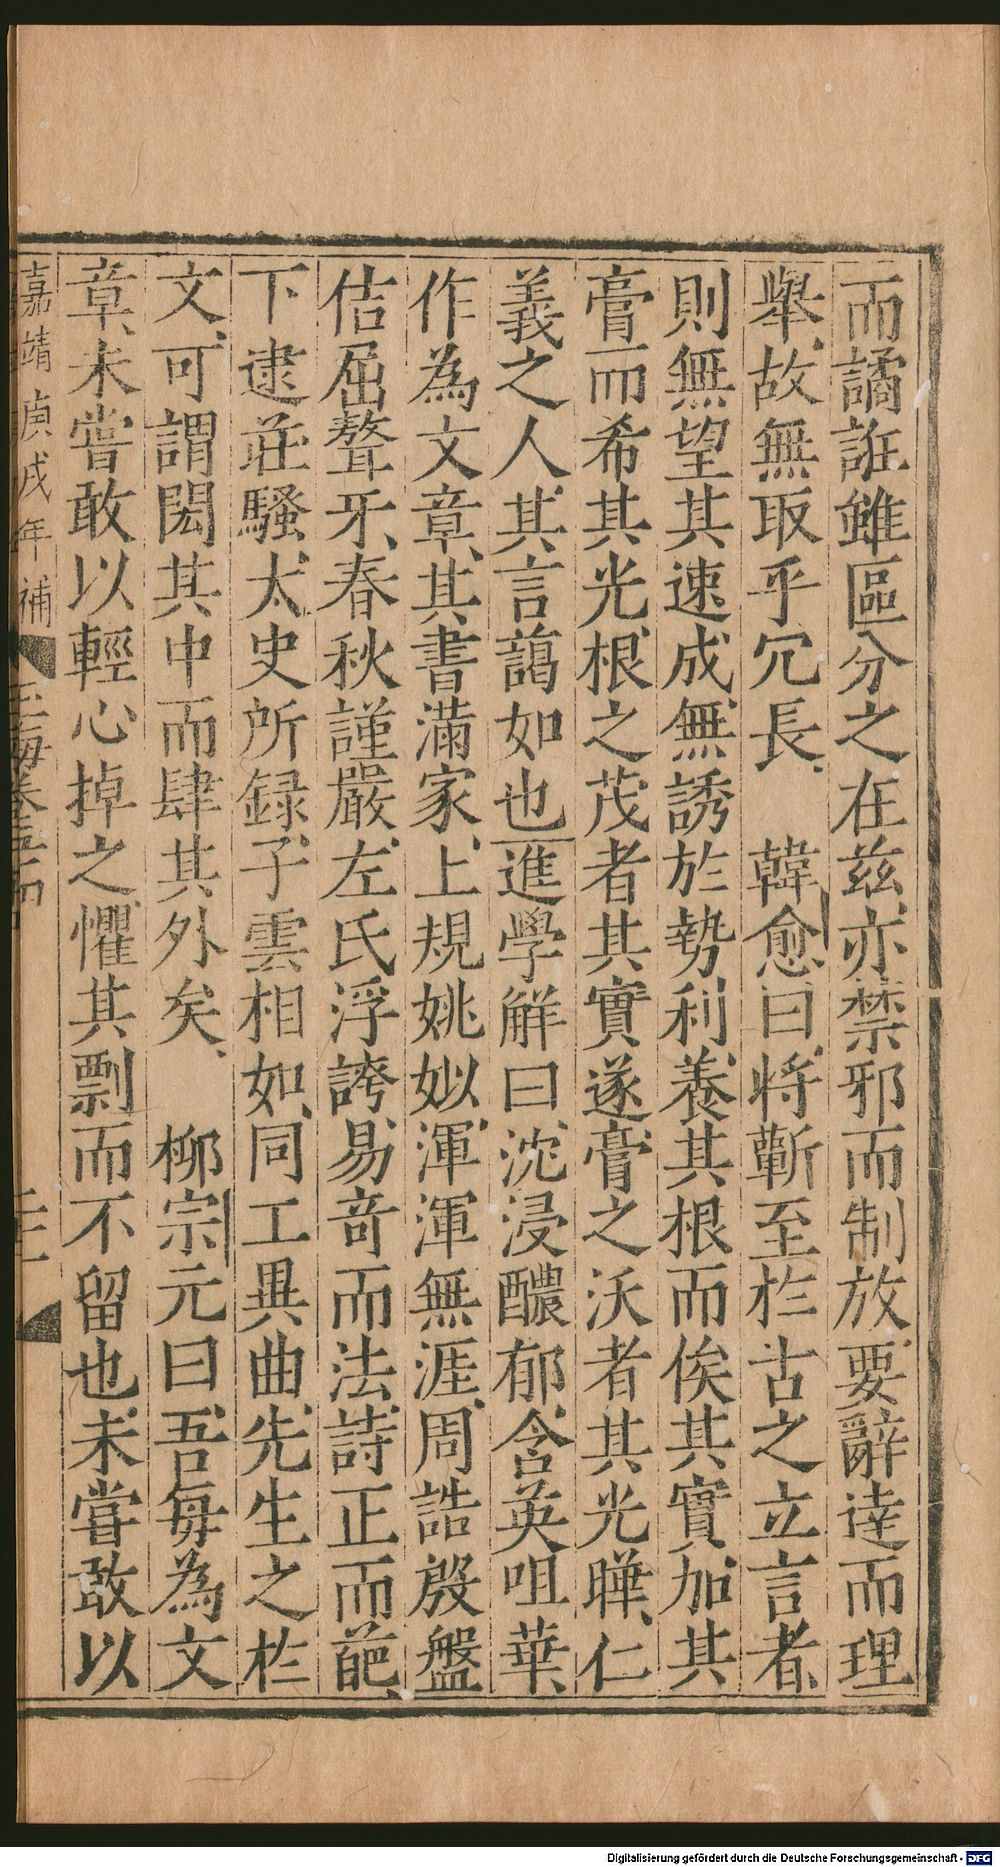 而譎誑雖區分之在兹亦禁邪而制放要辭達而理
舉故無取乎冗長 韓愈曰将蘄至於古之立言者
則無望其速成無誘於勢利養其根而俟其實加其
膏而希其光根之茂者其實遂膏之沃者其光曄仁
義之人其言藹如也進學解曰沈浸醲郁含英咀華
作為文章其書滿家上規姚姒渾渾無涯周誥殷盤
佶屈聱牙春秋謹嚴左氏浮誇易竒而法詩正而葩
下逮莊騷太史所録子雲相如同工異曲先生之於
文可謂閎其中而肆其外矣 柳宗元曰吾每為文
章未嘗敢以輕心掉之懼其剽而不留也未嘗敢以
嘉靖庚戌年補 玉海卷五四
Digitalisierung gefördert durch die Deutsche Forschungsgemeinschaft - DFG